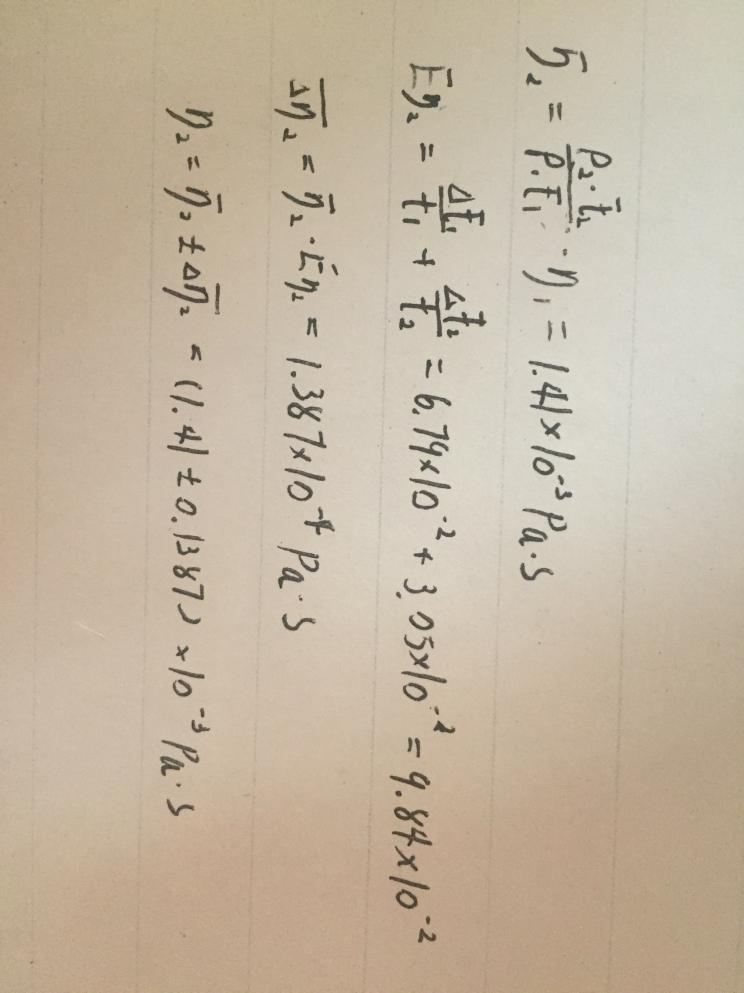 η̄₂ = ρ₂·t̄₂/ρ₁·t̄₁ · η₁ = 1.41×10⁻³ Pa·s
Ēη₂ = Δt̄₁/t̄₁ + Δt̄₂/t̄₂ = 6.79×10⁻² + 3.05×10⁻² = 9.84×10⁻²
Δη̄₂ = η̄₂ · Ēη₂ = 1.387×10⁻⁴ Pa·s
η₂ = η̄₂ ± Δη̄₂ = (1.41 ± 0.1387) ×10⁻³ Pa·s